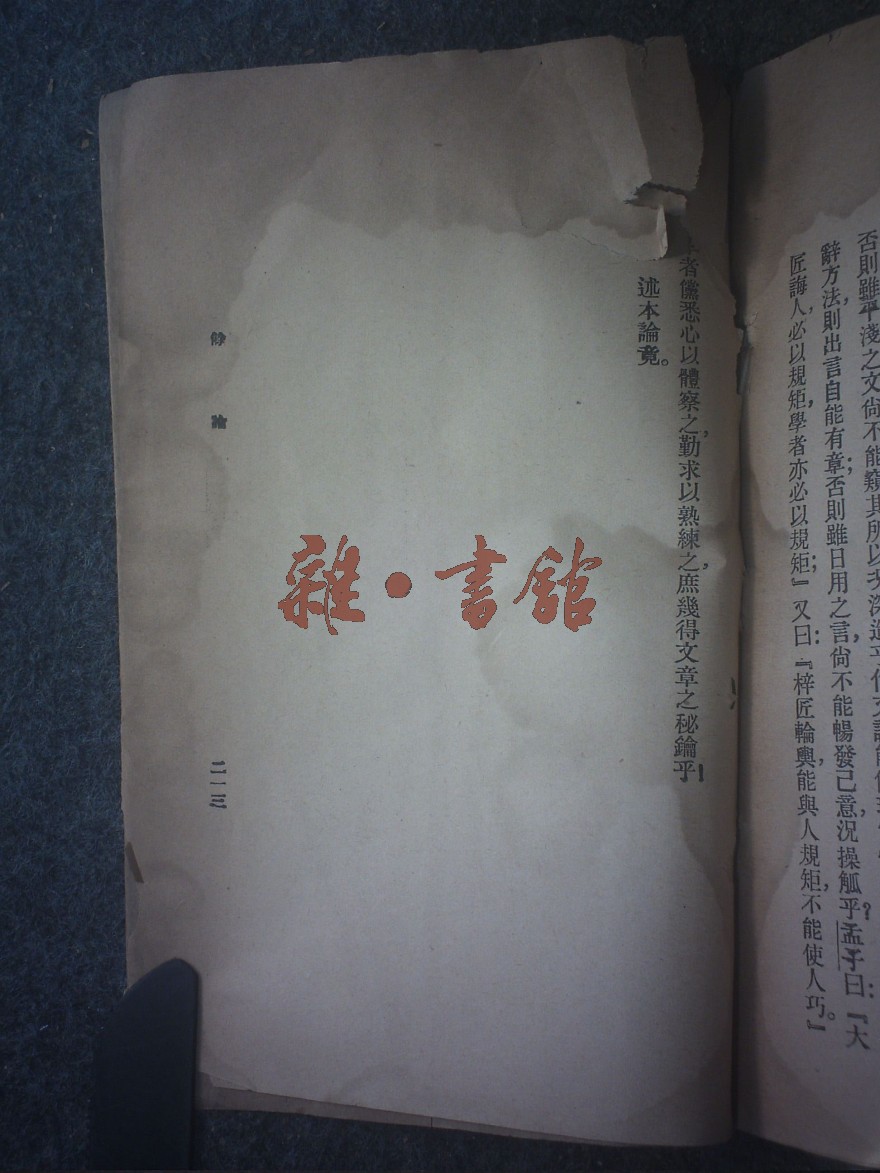 否則雖平淺之文尙不能窺其所以
辭方法，則出言自能有章；否則雖日用之言，尙不能暢發己意，況操觚乎？孟子曰：『大
匠誨人，必以規矩，學者亦必以規矩』；又曰：『梓匠輪輿，能與人規矩，不能使人巧。』
者儻悉心以體察之，勤求以熟練之，庶幾得文章之秘鑰乎！
述本論竟。
餘論
二一三
雜·書館